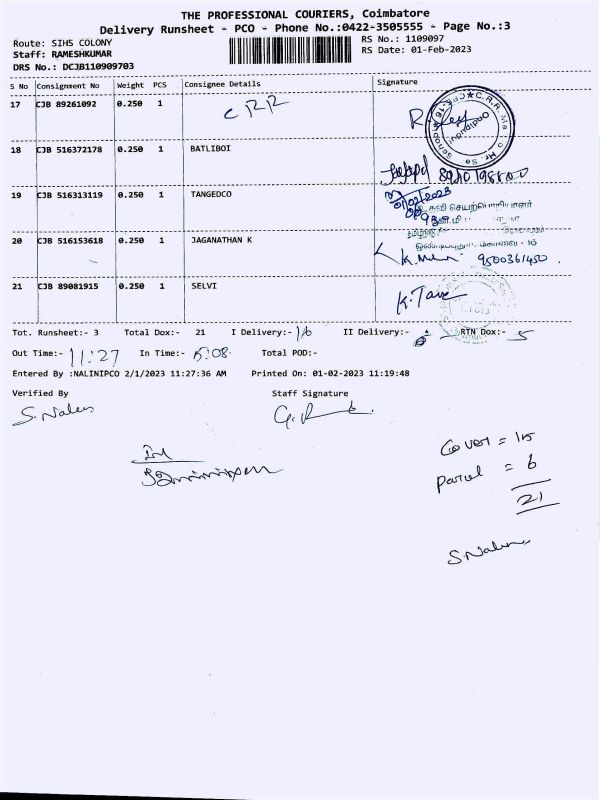 THE PROFESSIONAL COURIERS, Coimbatore
Delivery Runsheet - PCO - Phone No.:0422-3505555 - Page No.:3
Route: SIHS COLONY RS No.: 1109097
Staff: RAMESHKUMAR RS Date: 01-Feb-2023
DRS No.: DCJB110909703
S No Consignment No Weight PCS Consignee Details Signature
17 CJB 89261092 0.250 1 CRR
18 CJB 516372178 0.250 1 BATLIBOI
19 CJB 516313119 0.250 1 TANGEDCO
01/02/2023
செயற்பொறியாளர்
20 CJB 516153618 0.250 1 JAGANATHAN K
9500361450
21 CJB 89081915 0.250 1 SELVI
Tot. Runsheet:- 3 Total Dox:- 21 I Delivery:- 16 II Delivery:- RTN Dox:- 5
Out Time:- 11:27 In Time:- 5:08 Total POD:-
Entered By :NALINIPCO 2/1/2023 11:27:36 AM Printed On: 01-02-2023 11:19:48
Verified By Staff Signature
S. Nalini
Cover = 15
Parcel = 6
21
S. Nalini